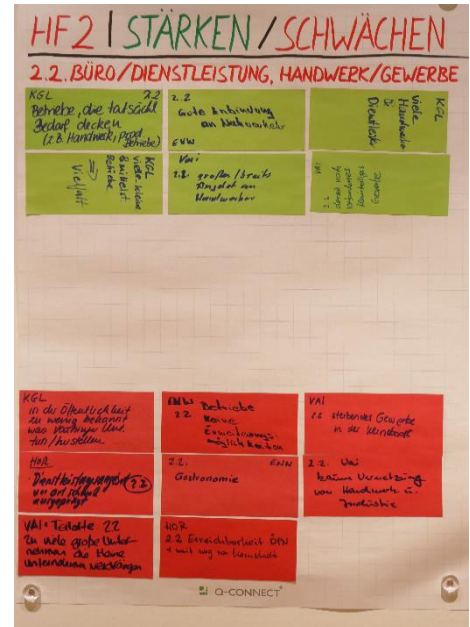 HF2 | STÄRKEN / SCHWÄCHEN
2.2. BÜRO/DIENSTLEISTUNG, HANDWERK/GEWERBE
KGL 2.2
Betriebe, die tatsächl.
Bedarf decken
(z.B. Handwerk, prod.
Betriebe)
2.2
Gute Anbindung
an Nahverkehr
ENW
KGL
viele
Handwerks
Dienstleist.
KGL
viele kleine
& mittelst.
Betriebe
=> Vielfalt
Vai
2.2. großes/breites
Angebot an
Handwerker
2.2
KGL
in der Öffentlichkeit
zu wenig bekannt
was Vaihinger Unt.
tun/herstellen
ENW Betriebe
2.2 keine
Erweiterungs-
möglichkeiten
VAI
2.2 sterbendes Gewerbe
in der Kernstadt
HOR
Dienstleistungsangebot 2.2
vor Ort schwach
ausgeprägt
2.2. ENW
Gastronomie
2.2. Vai
keine Vernetzung
von Handwerk u.
Industrie
VAI: Teilorte 2.2
Zu viele große Unter-
nehmen die kleine
Unternehmen verdrängen
HOR
2.2 Erreichbarkeit ÖPN
Q-CONNECT